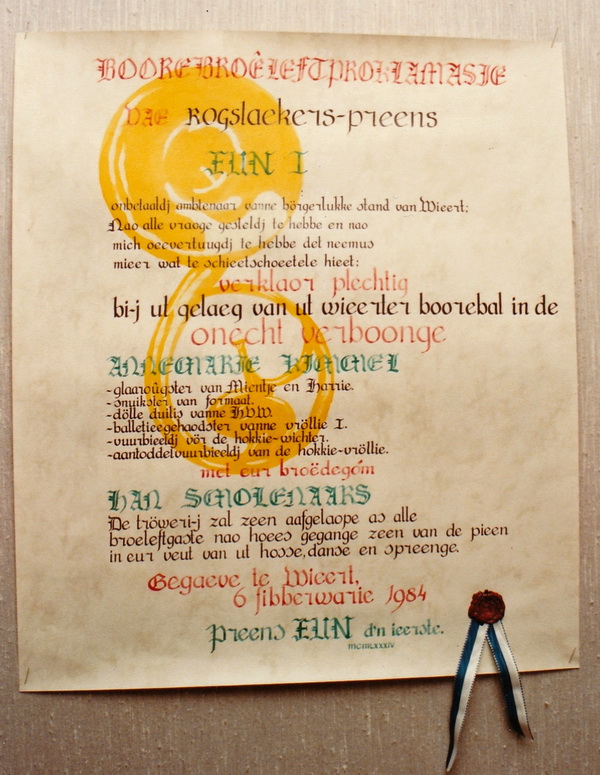 BOOREBROÈLEFTPROKLAMASIE
VAE ROGSLAEKERS-PREENS
EUN I
onbetaaldj ambtenaar vanne börgerlukke stand van Wieert;
Nao alle vraoge gesteldj te hebbe en nao
mich oecvertuugdj te hebbe det neemus
mieer wat te schieetschoeetele hieet:
verklaor plechtig
bi-j ut gelaeg van ut wieerter boorebal in de
onecht verboonge
ANNEMARIE KIMMEL
-glaaroûgster van Mientje en Harrie.
-snuikster van formaat.
-dölle duilis vanne H.V.W.
-balletieegehaodster vanne vröllie I.
-vuurbieeldj vör de hokkie-wichter.
-aantoddelvuurbieeldj van de hokkie-vröllie.
met eur broëdegóm
HAN SMOLENAARS
De tröweri-j zal zeen aafgelaope as alle
broeleftgaste nao hoees gegange zeen van de pieen
in eur veut van ut hosse, danse en spreenge.
Gegaeve te Wieert,
6 fibberwarie 1984
preens EUN d'n ieerste.